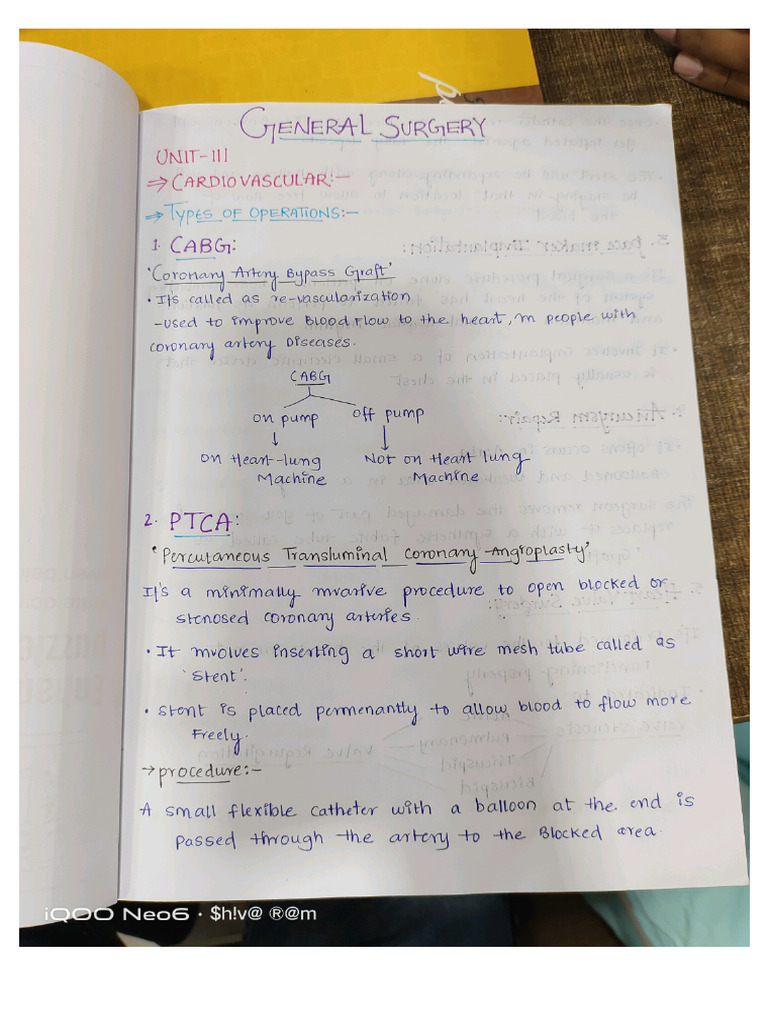 GENERAL SURGERY
UNIT-III
⇒ CARDIOVASCULAR:-
⇒ TYPES OF OPERATIONS:-
1. CABG:
'Coronary Artery Bypass Graft'
• It's called as re-vascularization
-used to improve Blood Flow to the heart, in people with
coronary artery Diseases.
CABG
on pump off pump
↓ ↓
on Heart-lung Not on Heart lung
Machine Machine
2. PTCA:
'Percutaneous Transluminal Coronary Angioplasty'
It's a minimally invasive procedure to open blocked or
stenosed coronary arteries.
• It involves inserting a short wire mesh tube called as
'stent'.
• stent is placed permenantly to allow blood to flow more
Freely.
→ procedure:-
A small flexible catheter with a balloon at the end is
passed through the artery to the Blocked area.
iQOO Neo6 · $h!v@ ®@m